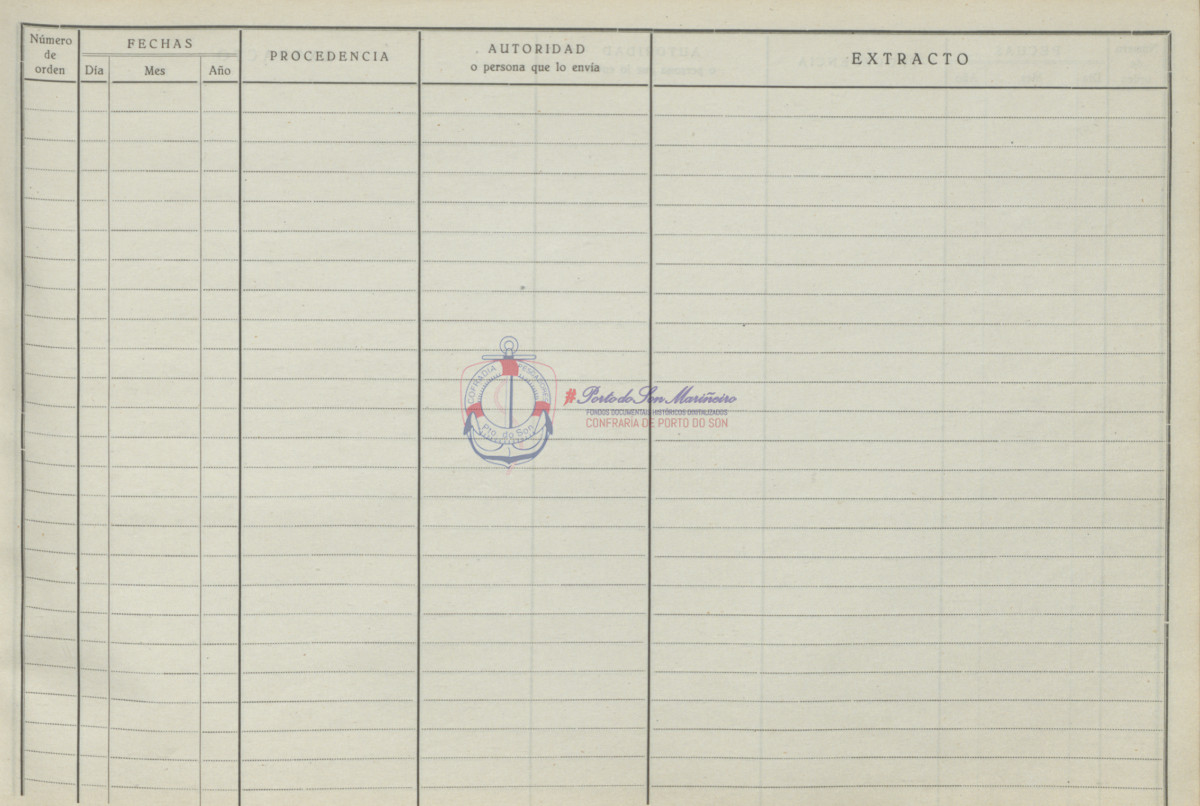 Número de orden
FECHAS
Día Mes Año
PROCEDENCIA
AUTORIDAD
o persona que lo envía
EXTRACTO
COFRADIA PESCADORES
Pto. do Son
#Porto do Son Mariñeiro
FONDOS DOCUMENTAIS HISTÓRICOS DIXITALIZADOS
CONFRARÍA DE PORTO DO SON